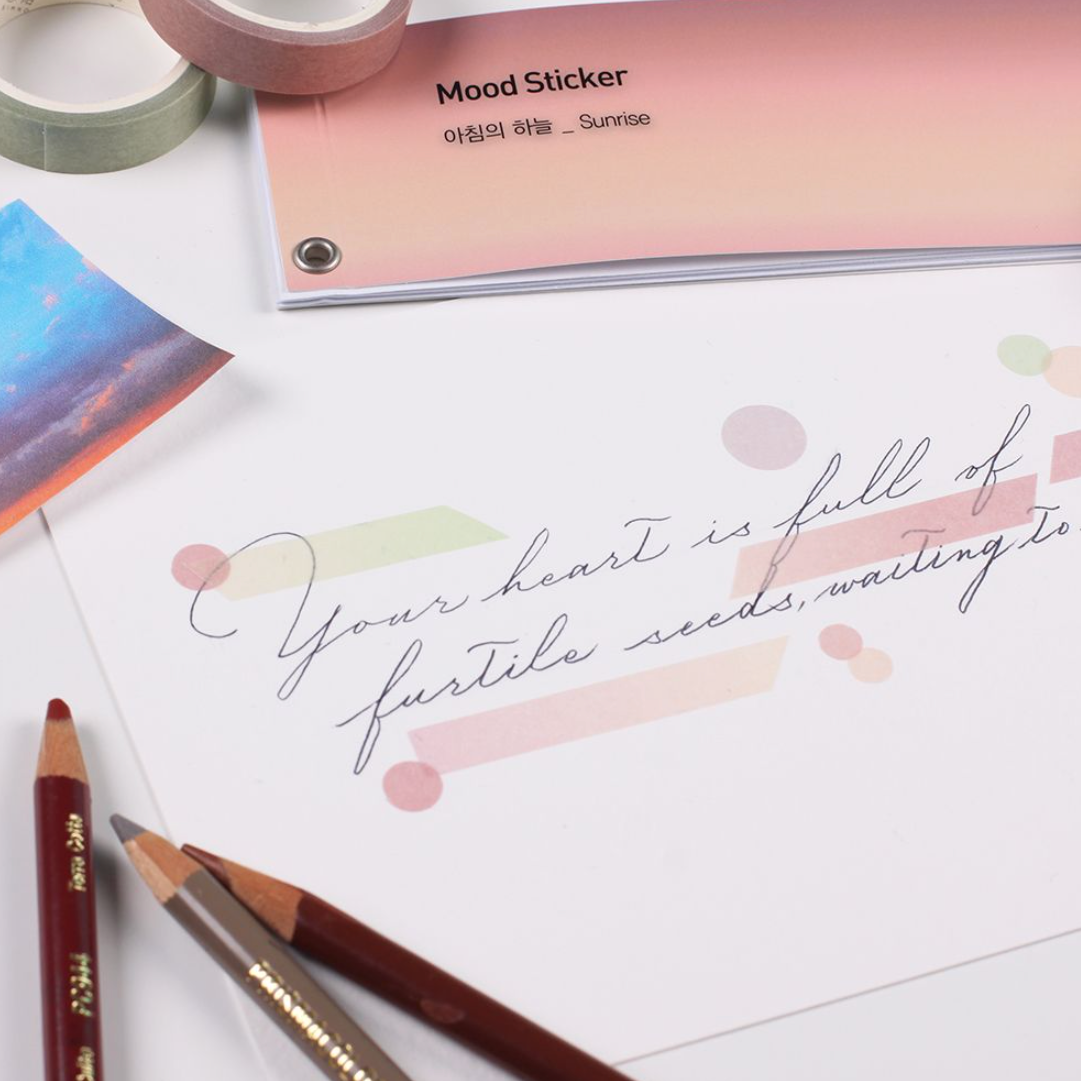 Mood Sticker
아침의 하늘 _ Sunrise
Your heart is full of
furtile seeds, waiting to
Terra Cotta
PC944